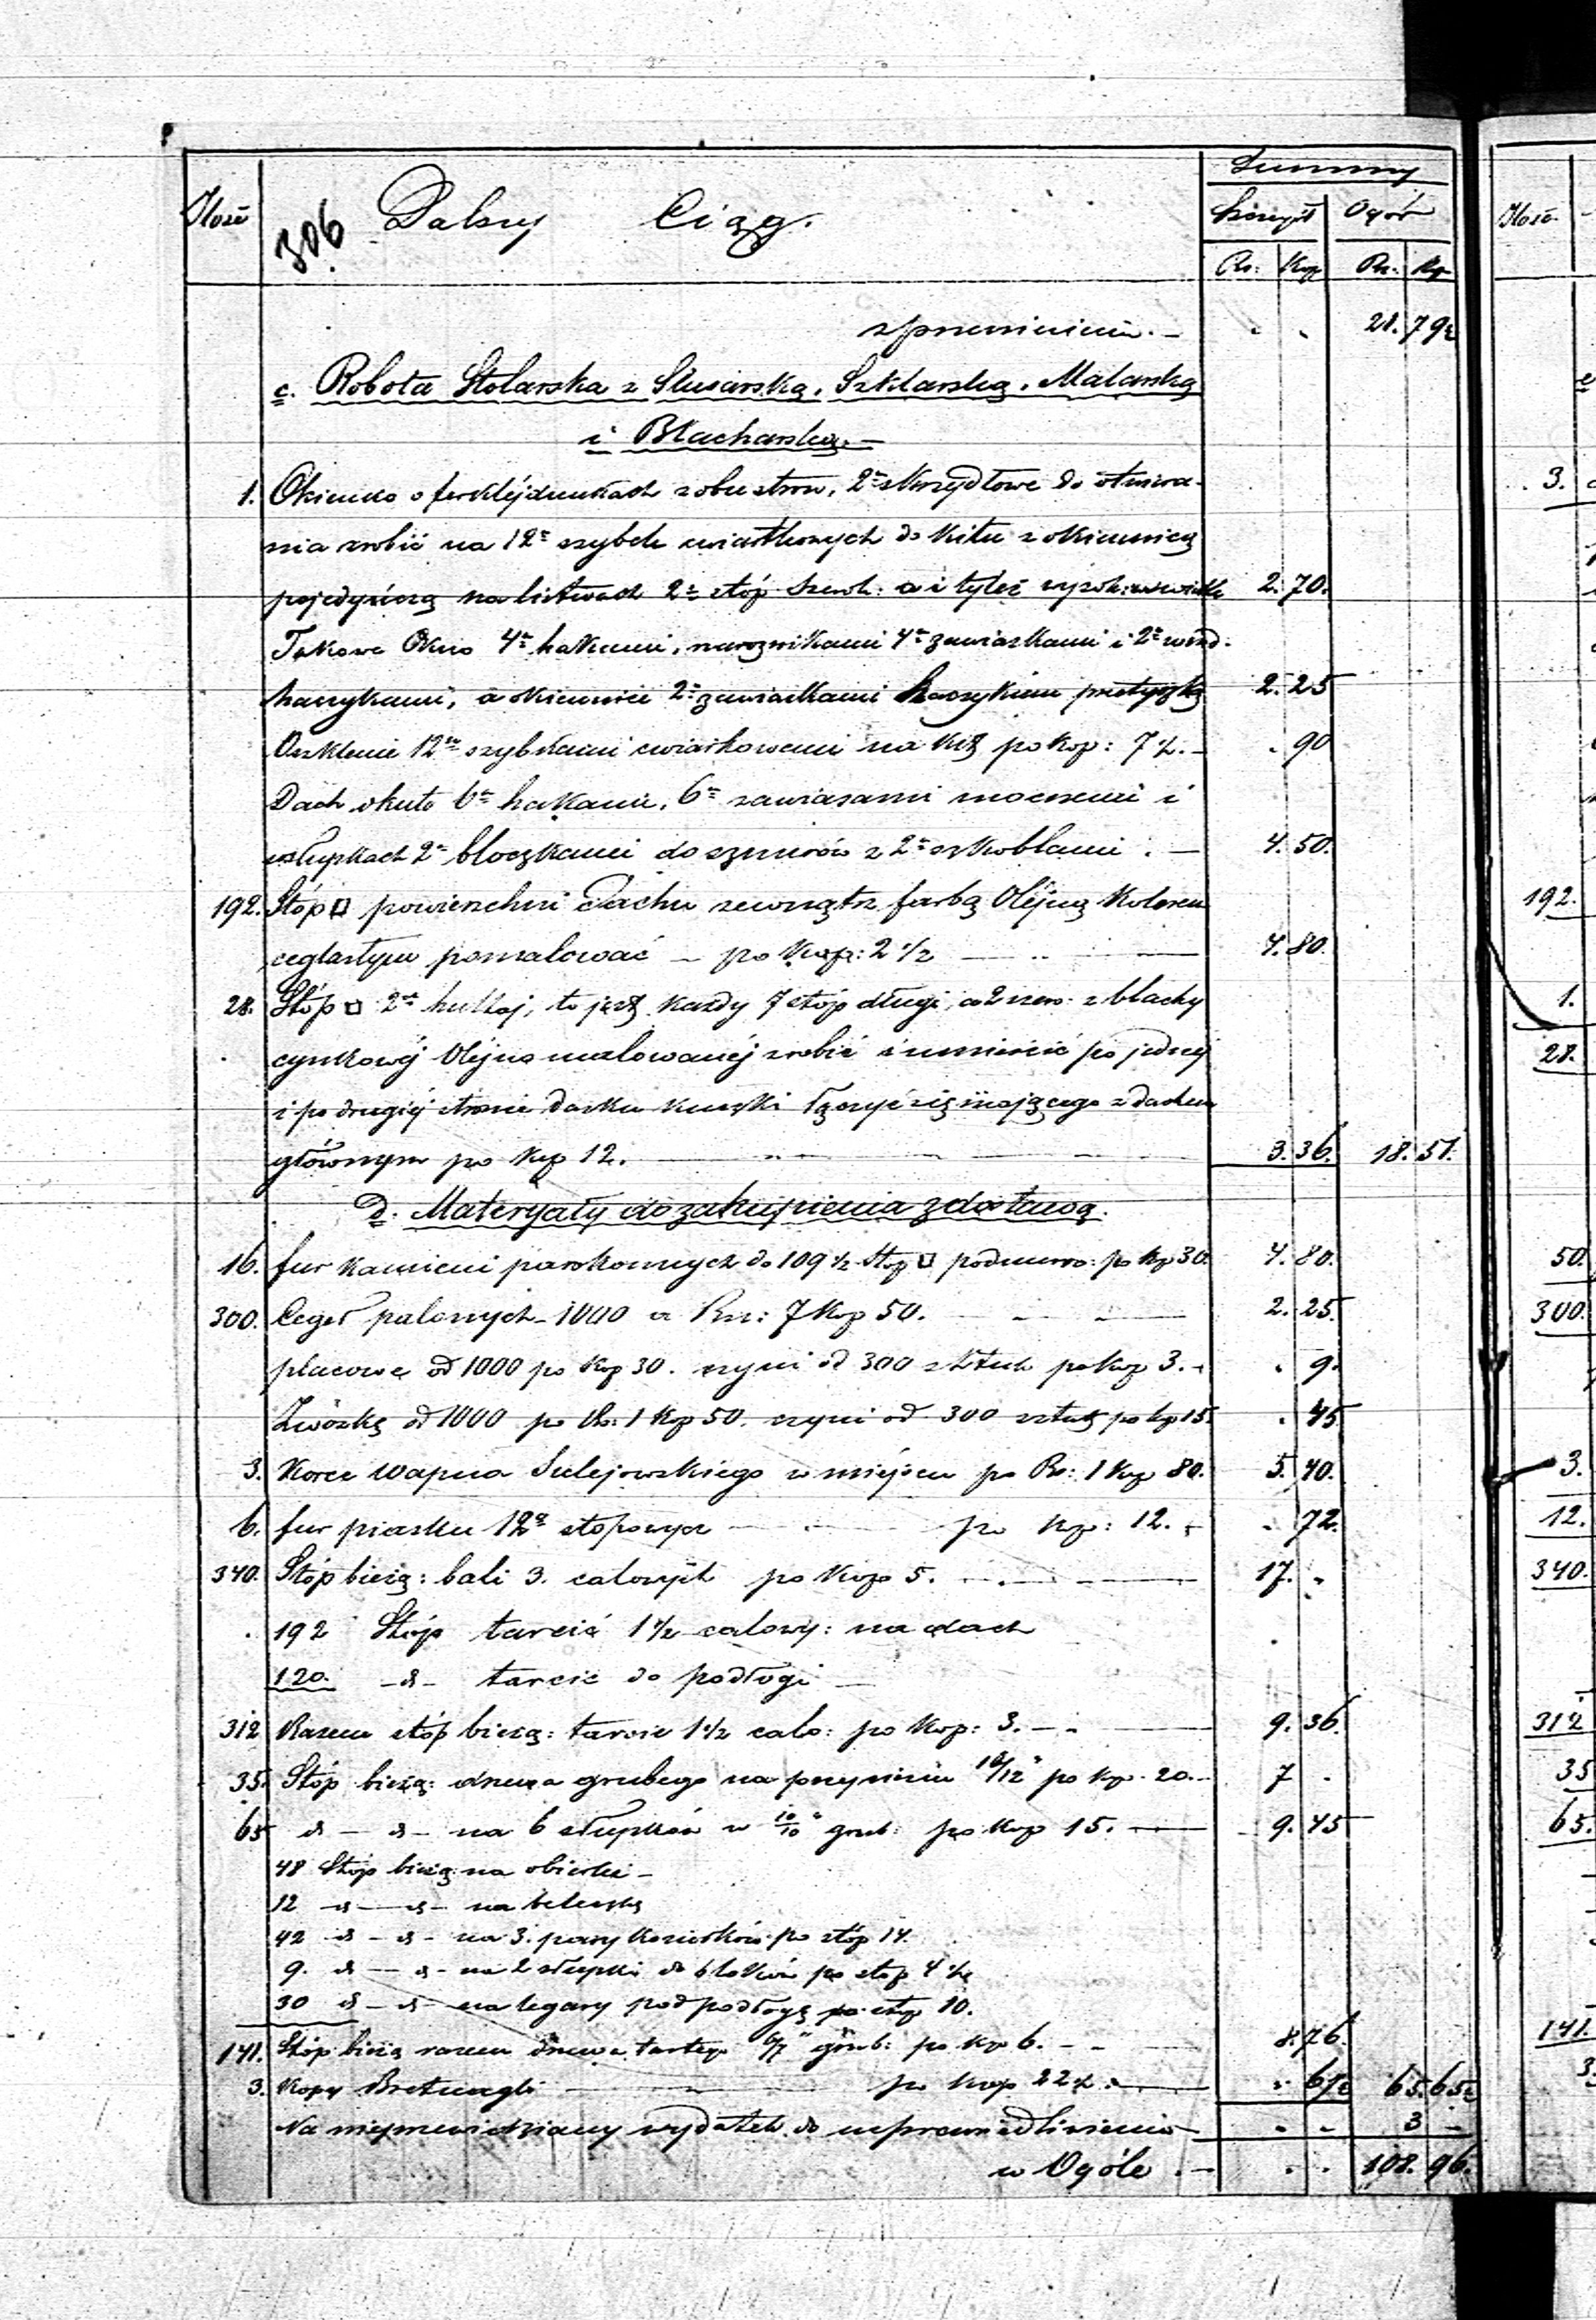 Summy
Ilość 306 Dalszy Ciąg. Szczegół Ogół
Rs: Kop Rs. Kp
z przeniesienia. — " " 21. 79½
c. Robota Stolarska z Slusarską, Szklarską, Malarską
i Blacharską. —
1. Okienko o ferklejdunkach z obu stron, 2ᵃ skrzydłowe do otwiera-
nia zrobić na 12ᵉ szybek cwiartkowych do Kitu z okiennicą
pojedyńczą na listwach 2ᵉ stóp szerok: a i tyleż wysok: w świetle 2. 70.
Takowe Okno 4ᵃ hakami, narożnikami 4ᵃ zawiaskami i 2ᵃ
haczykami, a okiennice 2ᵃ zawiaskami haczykiem przetyczką 2. 25
Oszklenie 12ᵗᵘ szybkami cwiartkowemi na Kit po Kop: 7½. — " 90
Dach okuto 6ᵃ hakami, 6ᵃ zawiasami mocnemi i
w słupkach 2ᵃ bloczkami do sznurów z 2ᵃ szkoblami . — 4. 50.
192. Stóp □ powierzchni Dachu zewnątrz farbą Olejną Kolorem
ceglastym pomalować — po Kop: 2 ½ — 4. 80.
28. Stóp □ 2ᶜʰ , to jest Każdy 7 stóp długi, a 2 szero: z blachy
cynkowéj Olejno malowanéj zrobić i umieścić po jednéj
i po drugiéj stronie daszku łączyć się mającego z dachem
głównym po kop 12. — 3. 36. 18. 51.
D. Materyały do zakupienia z dostawą.
16. fur Kamieni parokonnych do 109 ½ Stop □ podmuro: po kop 30. 4. 80.
300. Cegeł palonych — 1000 a Rsr: 7 Kop 50. 2. 25.
placowe od 1000 po Kop 30. czyni od 300 sztuk po kop 3. — " 9.
Zwózkę od 1000 po Rs: 1 Kop 50. czyni od 300 sztuk po kop 15. " 45
3. Korce wapna Sulejowskiego w miejscu po Rs: 1 Kop 80. 5. 40.
6. fur piasku 12ᵒ stopowych — po kop: 12. — " 72.
340. Stóp bieżą: bali 3. calowych po Kop 5. — 17. "
192 Stóp tarcić 1½ calowy: na dach
120. —d— tarcic do podłogi —
312 Razem stóp bieżą: tarcic 1½ calo: po Kop: 3. — 9. 36.
35. Stóp bieżą: drzewa grubego na przyciesie 10/12" po kop. 20. — 7 "
65 d — d — na 6 słupków w 10/10" grub: po Kop 15. — 9. 75
48 Stóp bieżą: na
12 d — d — na beleczkę
42 d — d — na 3. pary Koziołków po stóp 14.
9. d — d — na 2 słupki do bloków po stop 4 ½
30 d — d — na legary pod podłogę po stop 10.
141. Stóp bieżą razem drzewa tartego 6/7" grub: po kop 6. — 8. 76.
3. Kopy Bretnagli — po kop 22½. — " 67½ 65. 65½
Na nieprzewidziany wydatek do usprawiedliwienia — " " 3 —
w Ogóle . — " " 108. 96.
Ilość
3.
192.
1.
28.
50.
300.
3.
12.
340.
312
35
65.
141.
3.